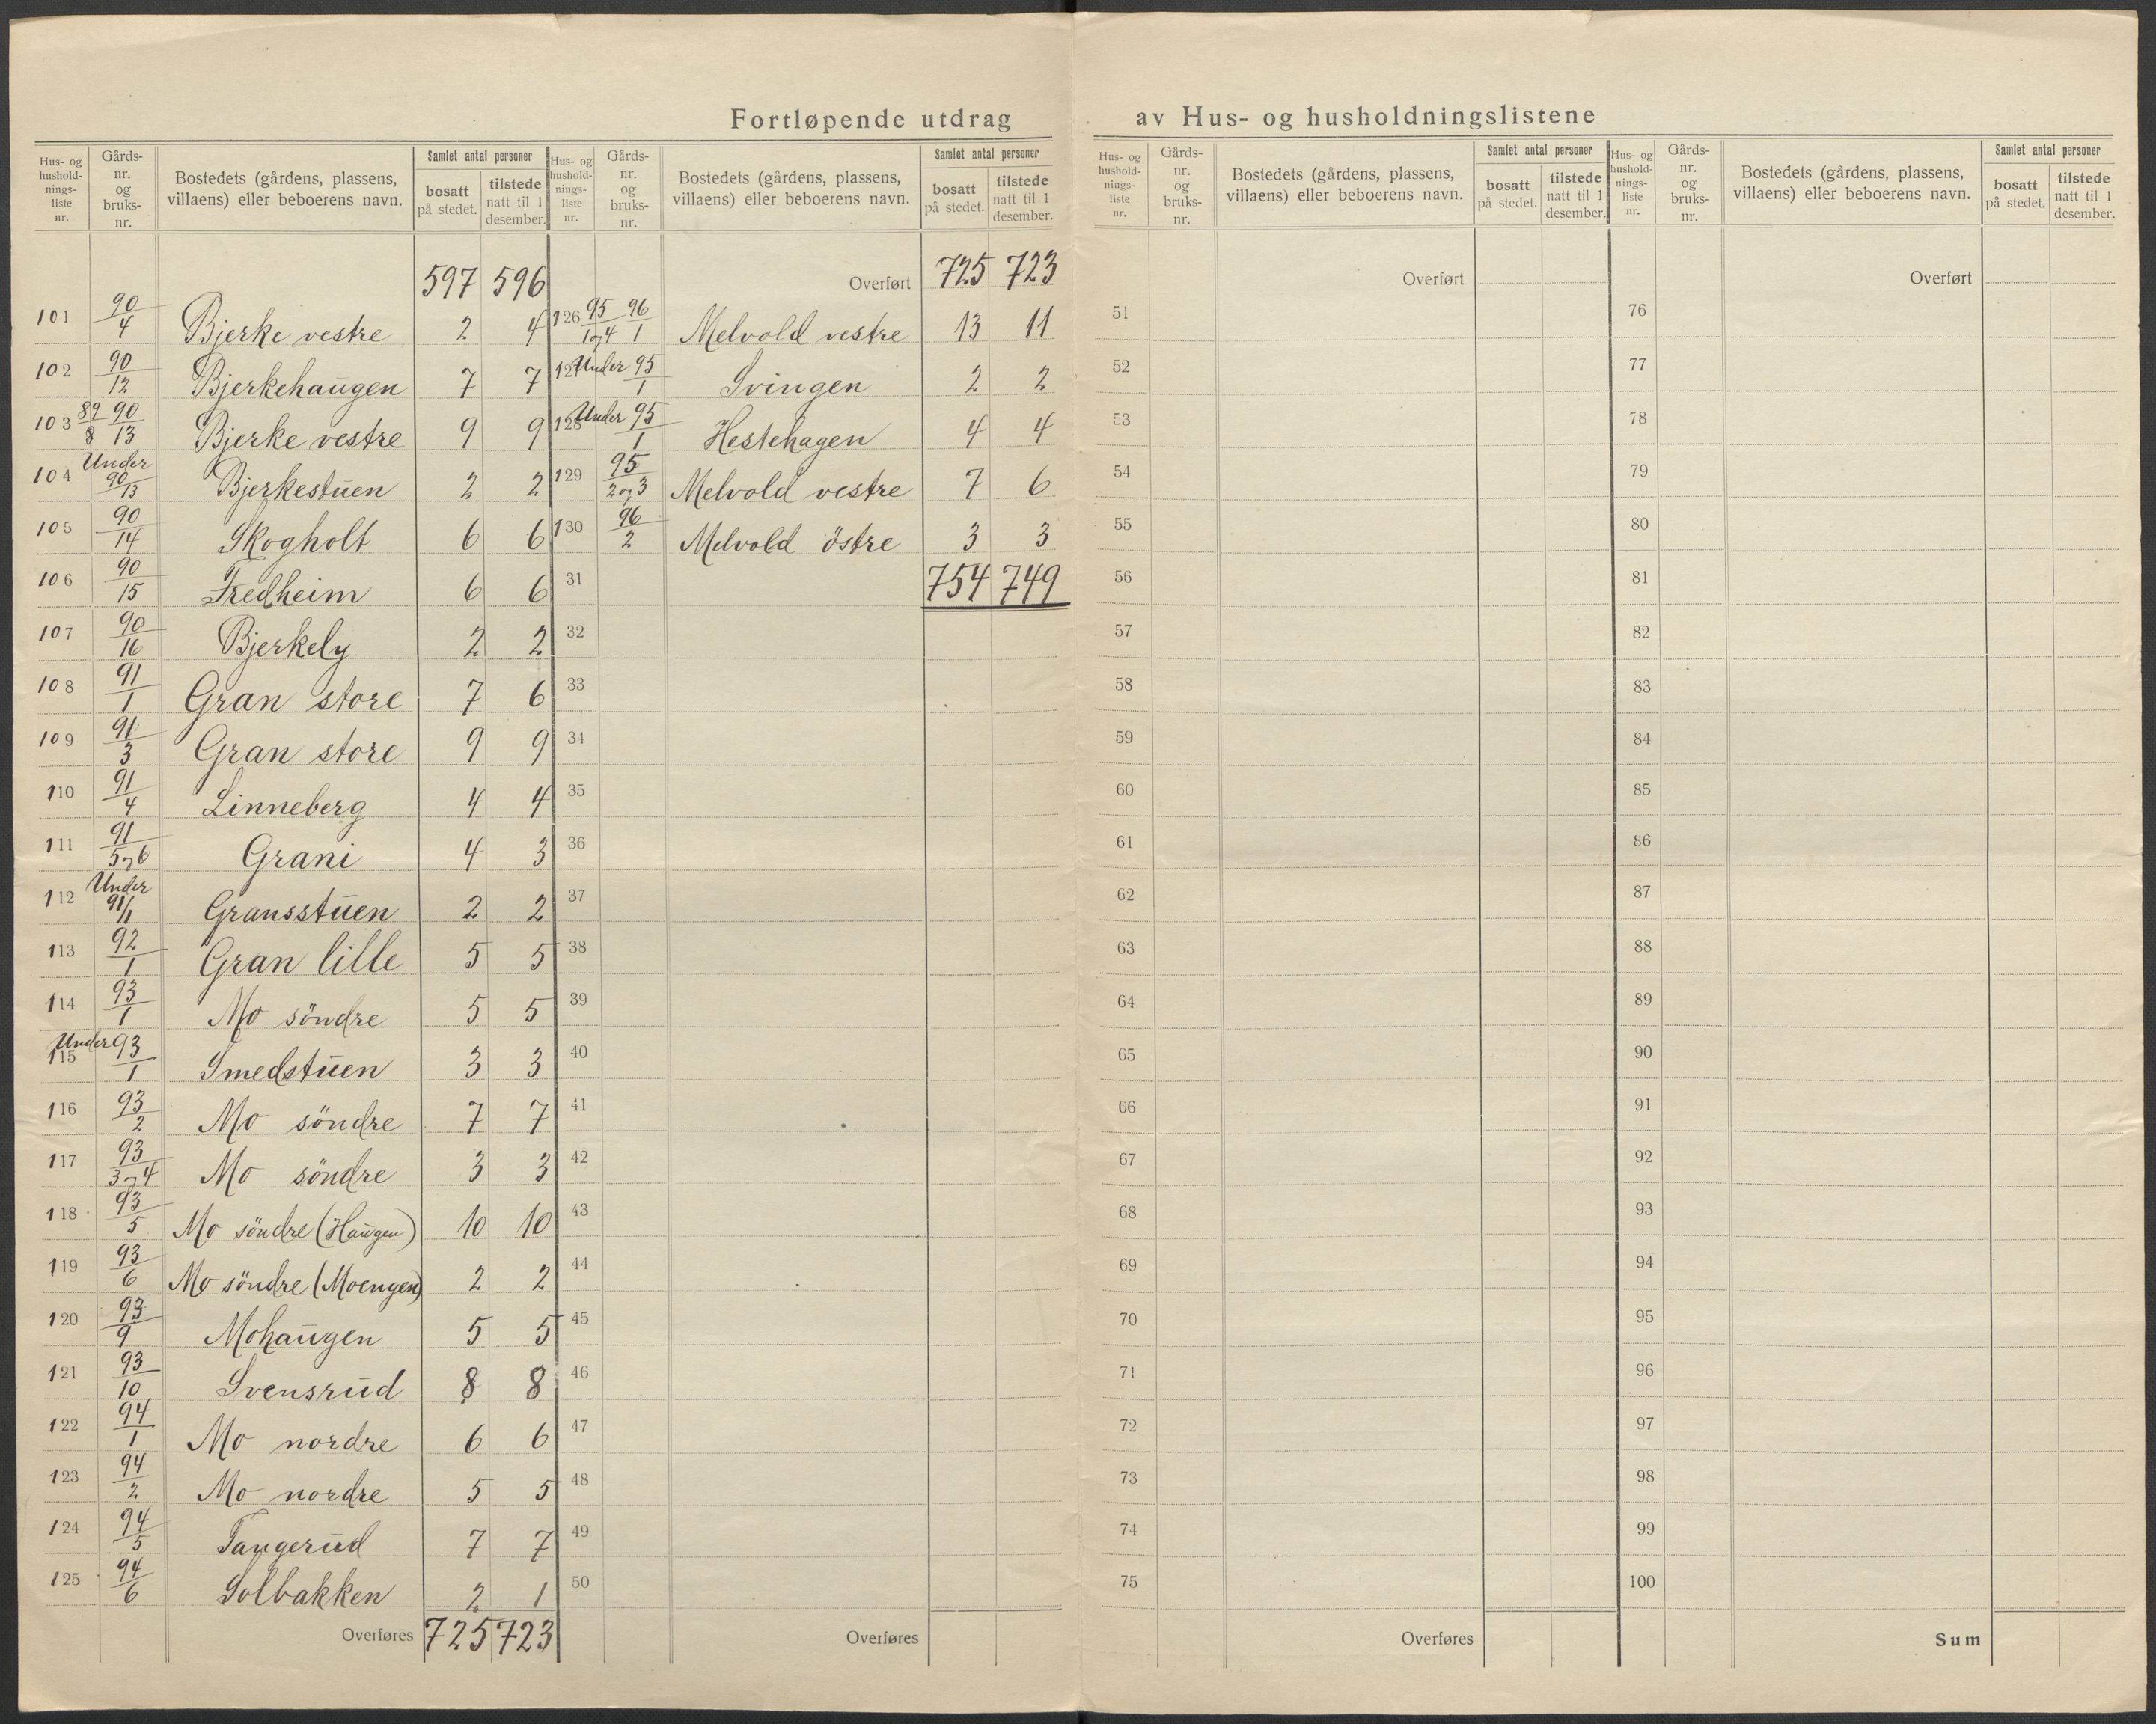 Fortløpende utdrag av Hus- og husholdningslistene
Hus- og hushold-nings-liste nr. | Gårds-nr. og bruks-nr. | Bostedets (gårdens, plassens, villaens) eller beboerens navn. | Samlet antal personer | bosatt på stedet. | tilstede natt til 1 desember.
597 596
101 90/4 Bjerke vestre 2 4
102 90/12 Bjerkehaugen 7 7
103 89/8 90/13 Bjerke vestre 9 9
104 Under 90/13 Bjerkestuen 2 2
105 90/14 Skogholt 6 6
106 90/15 Fredheim 6 6
107 90/16 Bjerkely 2 2
108 91/1 Gran store 7 6
109 91/3 Gran store 9 9
110 91/4 Linneberg 4 4
111 91/5 og 6 Grani 4 3
112 Under 91/1 Gransstuen 2 2
113 92/1 Gran lille 5 5
114 93/1 Mo söndre 5 5
115 Under 93/1 Smedstuen 3 3
116 93/2 Mo söndre 7 7
117 93/3 og 4 Mo söndre 3 3
118 93/5 Mo söndre (Haugen) 10 10
119 93/6 Mo söndre (Moengen) 2 2
120 93/9 Mohaugen 5 5
121 93/10 Svensrud 8 8
122 94/1 Mo nordre 6 6
123 94/2 Mo nordre 5 5
124 94/5 Tangerud 7 7
125 94/6 Solbakken 2 1
Overføres 725 723
Hus- og hushold-nings-liste nr. | Gårds-nr. og bruks-nr. | Bostedets (gårdens, plassens, villaens) eller beboerens navn. | Samlet antal personer | bosatt på stedet. | tilstede natt til 1 desember.
Overført 725 723
126 95/1 og 4 96/1 Melvold vestre 13 11
127 Under 95/1 Svingen 2 2
128 Under 95/1 Hestehagen 4 4
129 95/2 og 3 Melvold vestre 7 6
130 96/2 Melvold östre 3 3
31 754 749
32
33
34
35
36
37
38
39
40
41
42
43
44
45
46
47
48
49
50
Overføres
Hus- og hushold-nings-liste nr. | Gårds-nr. og bruks-nr. | Bostedets (gårdens, plassens, villaens) eller beboerens navn. | Samlet antal personer | bosatt på stedet. | tilstede natt til 1 desember.
Overført
51
52
53
54
55
56
57
58
59
60
61
62
63
64
65
66
67
68
69
70
71
72
73
74
75
Overføres
Hus- og hushold-nings-liste nr. | Gårds-nr. og bruks-nr. | Bostedets (gårdens, plassens, villaens) eller beboerens navn. | Samlet antal personer | bosatt på stedet. | tilstede natt til 1 desember.
Overført
76
77
78
79
80
81
82
83
84
85
86
87
88
89
90
91
92
93
94
95
96
97
98
99
100
Sum